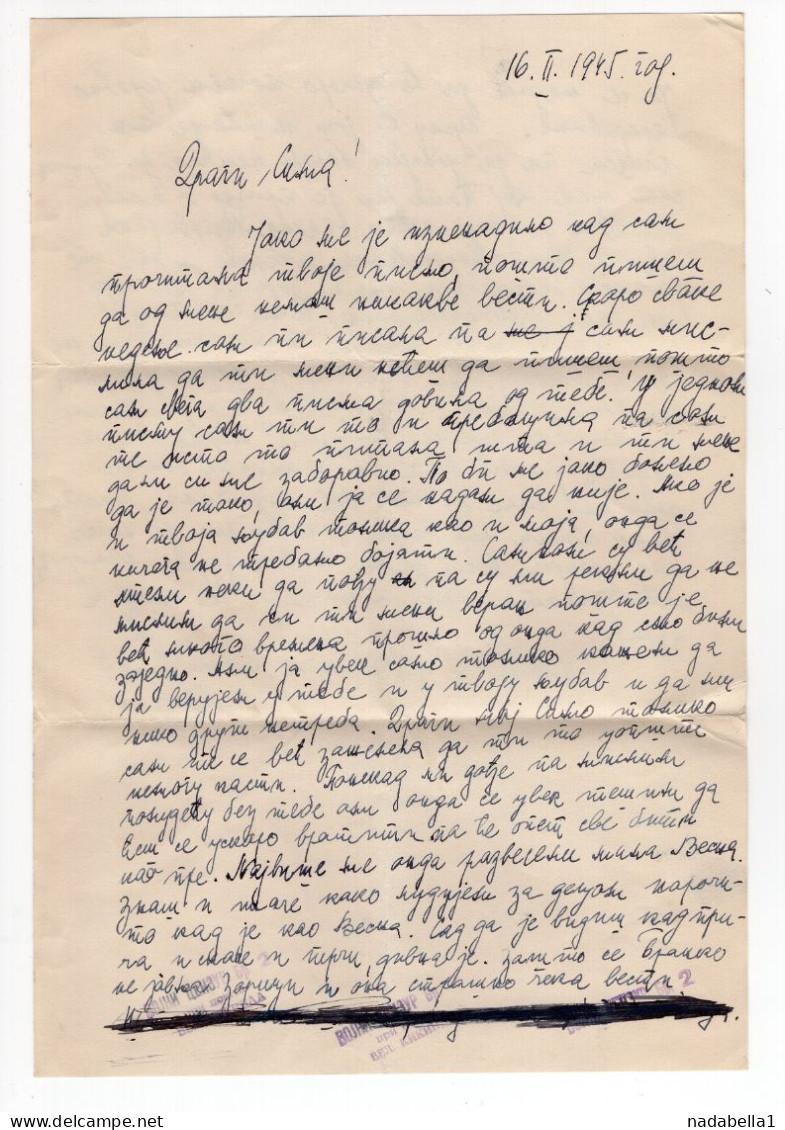 16. II. 1945. год.
Драги Сима!
Јако ме је изненадило кад сам
прочитала твоје писмо, пошто пишеш
да од мене немаш никакве вести. Скоро сваке
недеље сам ти писала па сам мис-
лила да ти мени нећеш да пишеш, пошто
сам свега два писма добила од тебе. У једном
писму сам ти то и пребацила па сам
те исто то питала шта и ти мене
дали си ме заборавио. То би ме јако болело
да је тако, али ја се надам да није. Ако је
и твоја љубав толика као и моја, онда се
ничега не требамо бојати. Самном су већ
хтели неки да пођу па су ми рекли да не
мислим да си ти мени веран пошто је
већ много времена прошло од онда кад смо били
заједно. Али ја увек само толико кажем да
ја верујем у тебе и у твоју љубав и да ми
нико други нетреба. Драги мој Симо толико
сам те се већ зажелела да ти то уопште
немогу касти. Понекад ми дође па мислим
полудећу без тебе али онда се увек тешим да
ћеш се ускоро вратити па ће опет све бити
као пре. Највише ме онда развесели мала Весна.
Знаш и иначе како лудујем за децом нарочи-
то кад је као Весна. Сад да је видиш кад при-
ча и иначе и трчи, дивна је. Зашто се Бранко
не јавља Зорици и она страшно чека вести
2
2
ВЕЛ. КИКИН
nadabella1